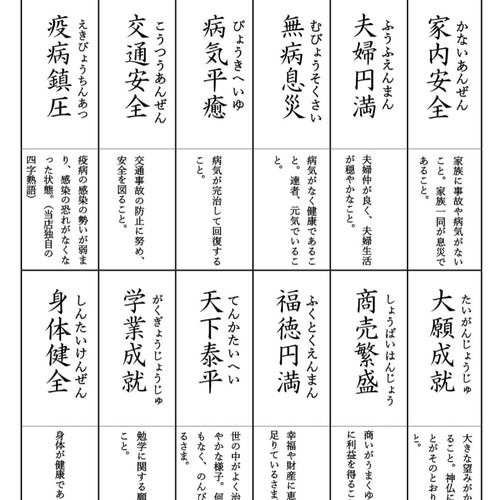 かないあんぜん
家内安全
家族に事故や病気がない
こと。家族一同が息災で
あること。
ふうふえんまん
夫婦円満
夫婦仲が良く、夫婦生活
が穏やかなこと。
むびょうそくさい
無病息災
病気がなく健康であるこ
と。達者、元気でいるこ
と。
びょうきへいゆ
病気平癒
病気が完治して回復する
こと。
こうつうあんぜん
交通安全
交通事故の防止に努め、
安全を図ること。
えきびょうちんあつ
疫病鎮圧
疫病の感染の勢いが弱ま
り、感染の恐れがなくな
った状態。(当店独自の
四字熟語)
たいがんじょうじゅ
大願成就
大きな望みがか
ること。神仏に
とがそのとおり
と。
しょうばいはんじょう
商売繁盛
商いがうまくゆ
に利益を得るこ
ふくとくえんまん
福徳円満
幸福や財産に恵
足りているさま。
てんかたいへい
天下泰平
世の中がよく治
やかな様子。何
もなく、のんび
るさま。
がくぎょうじょうじゅ
学業成就
勉学に関する願
こと。
しんたいけんぜん
身体健全
身体が健康であ